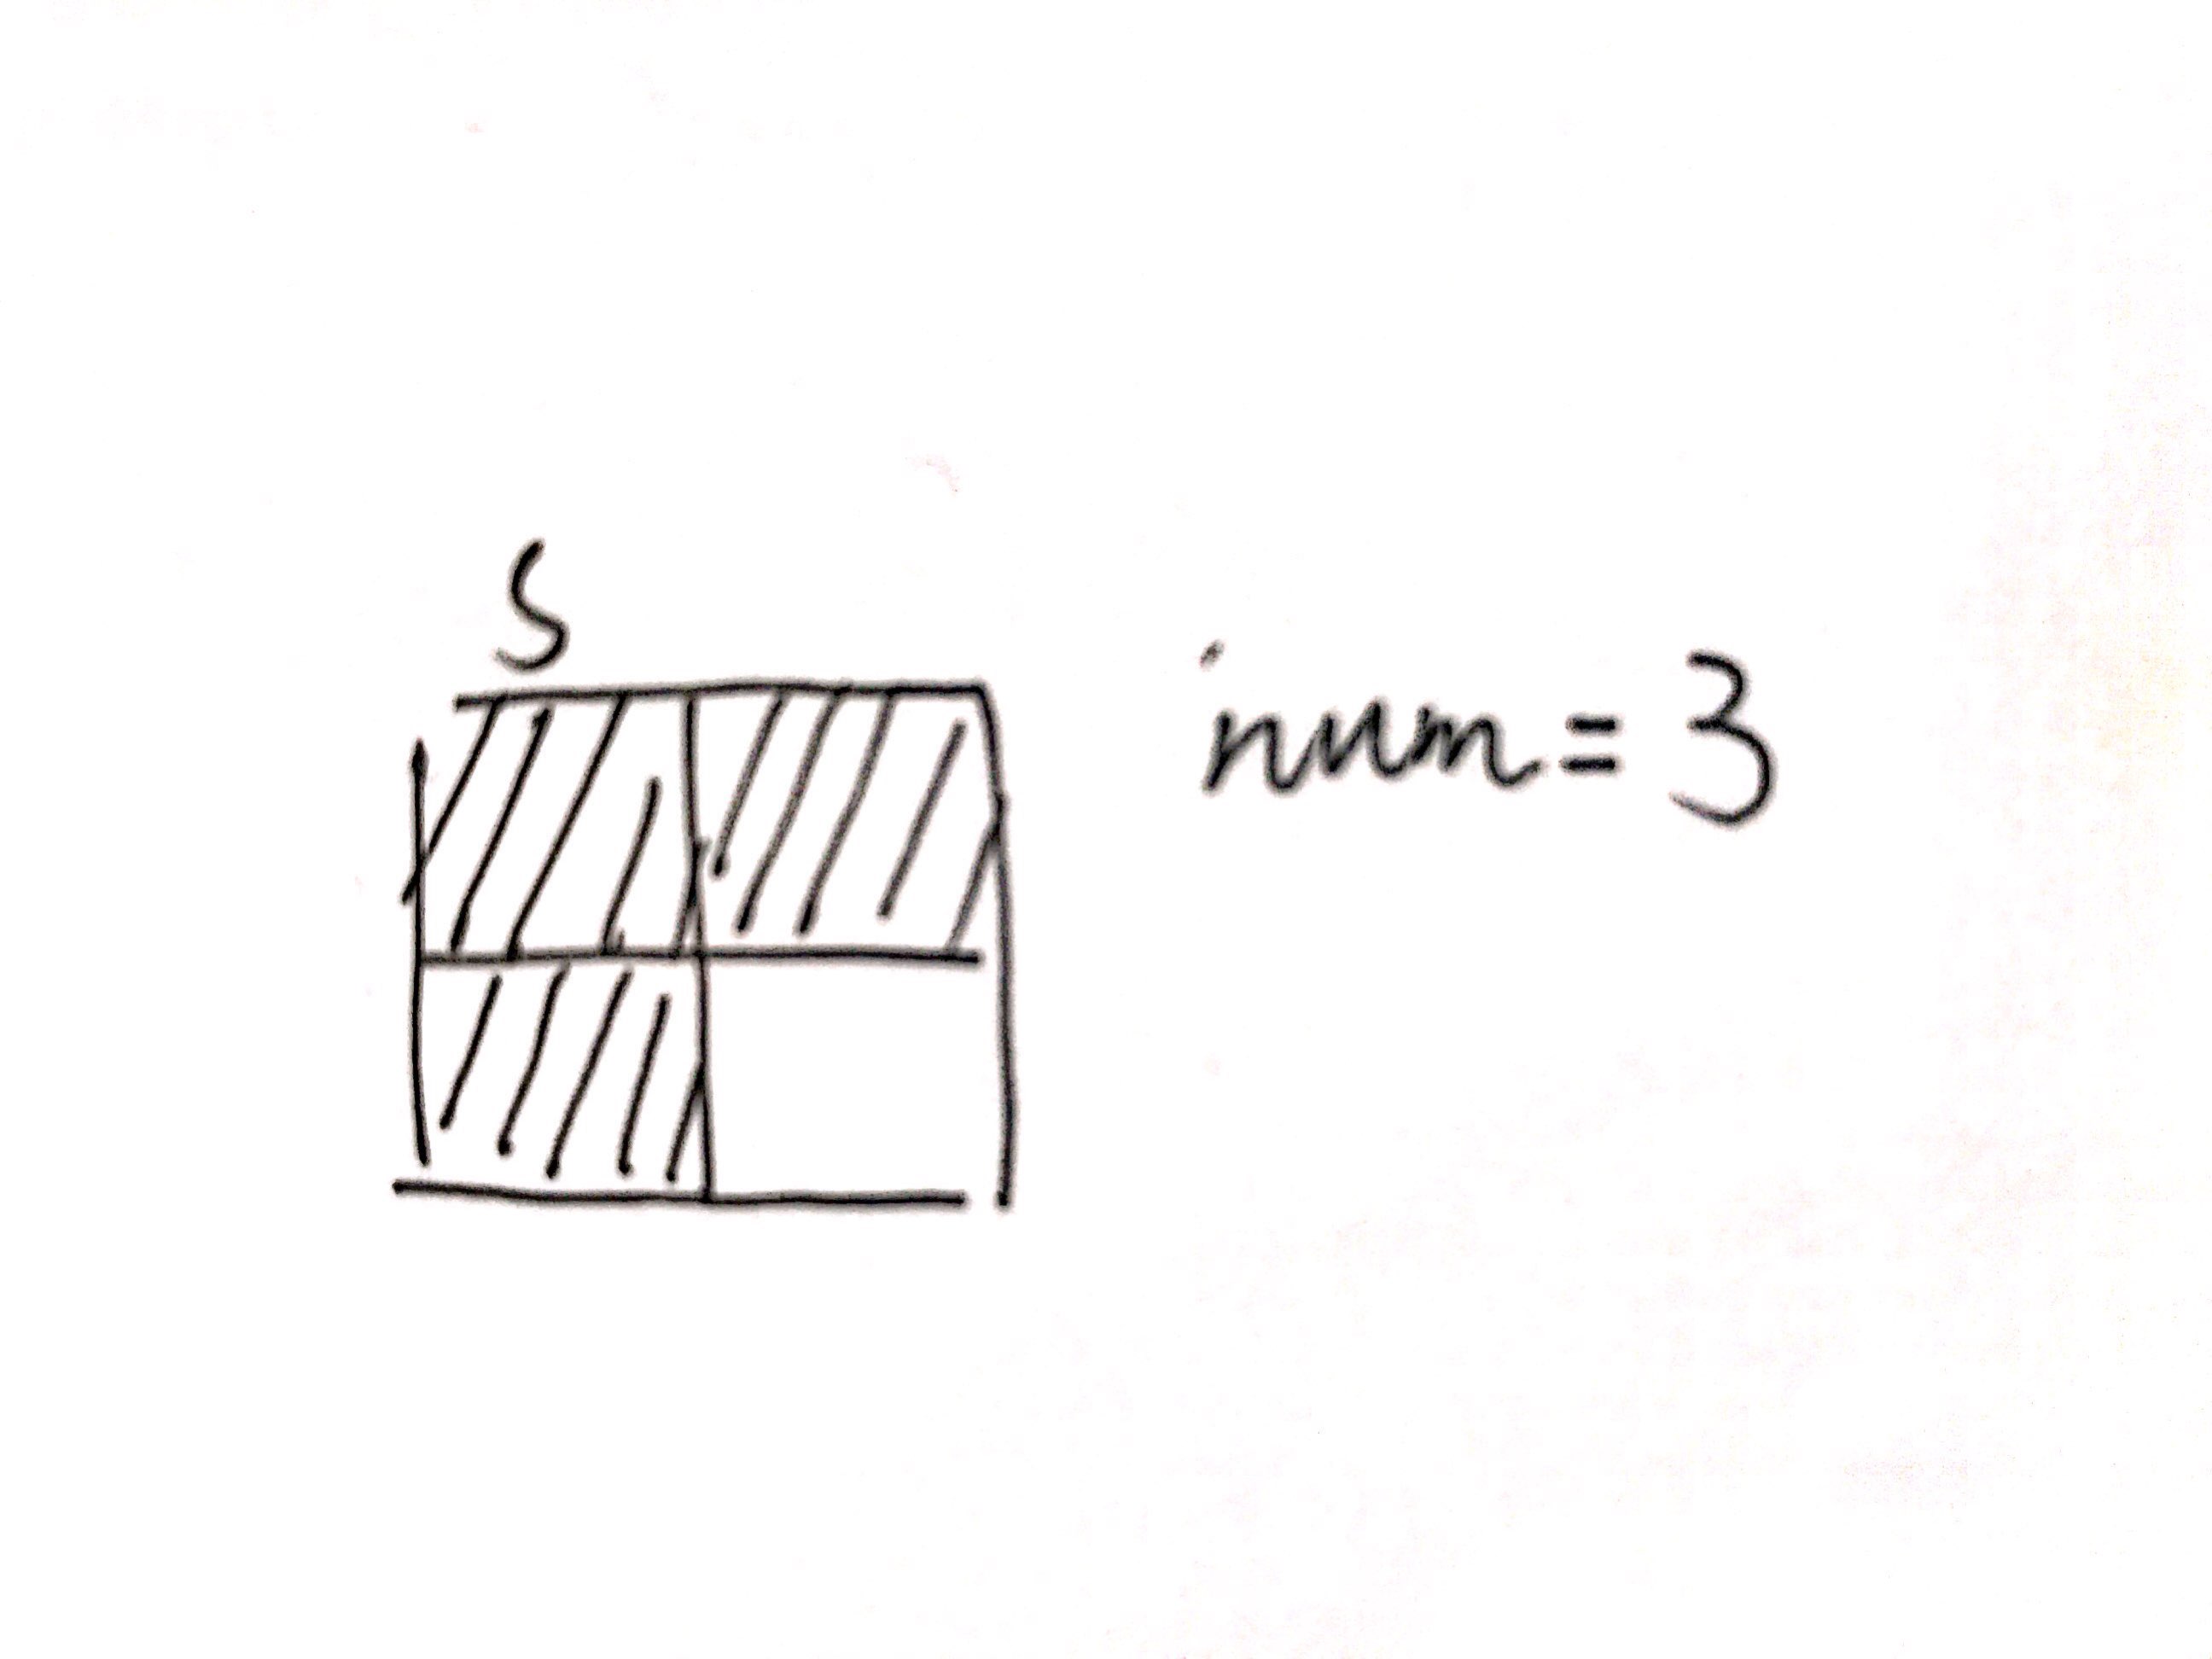 S
num=3